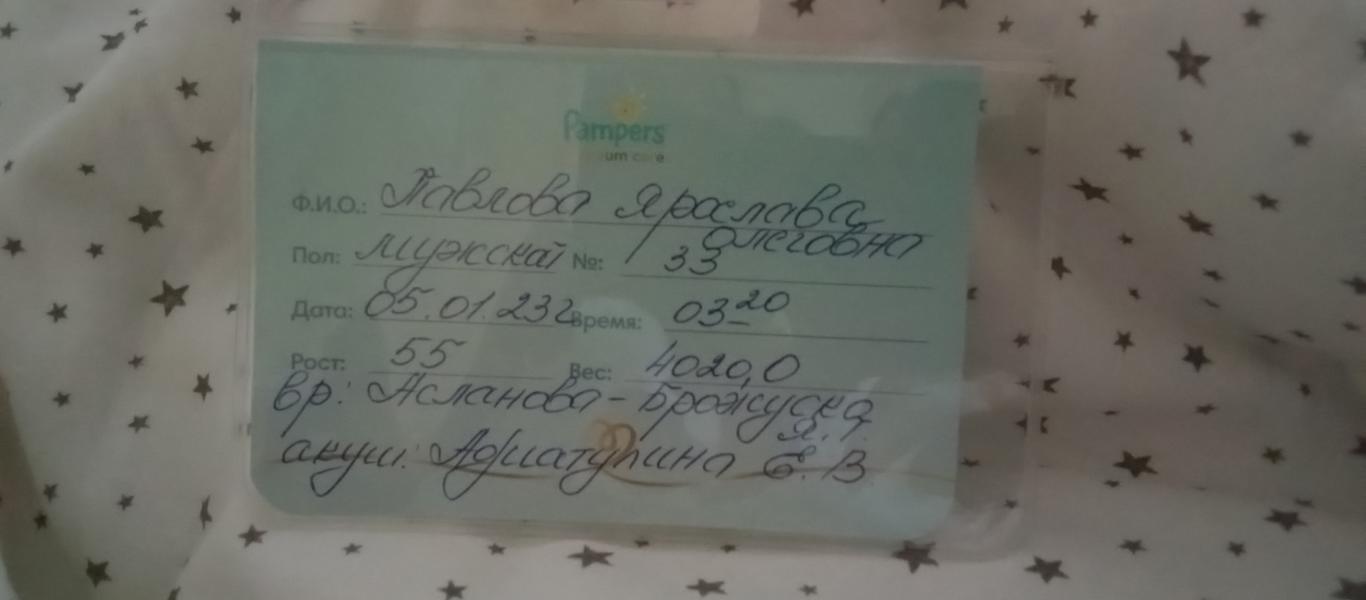 Pampers
um care
Ф.И.О.: Павлова Ярослава
Олеговна
Пол: мужской №: 33
Дата: 05.01.23г Время: 03 20
Рост: 55 Вес: 4020,0
вр: Асланова-Брожуска
Я.
акуш: Е.В.